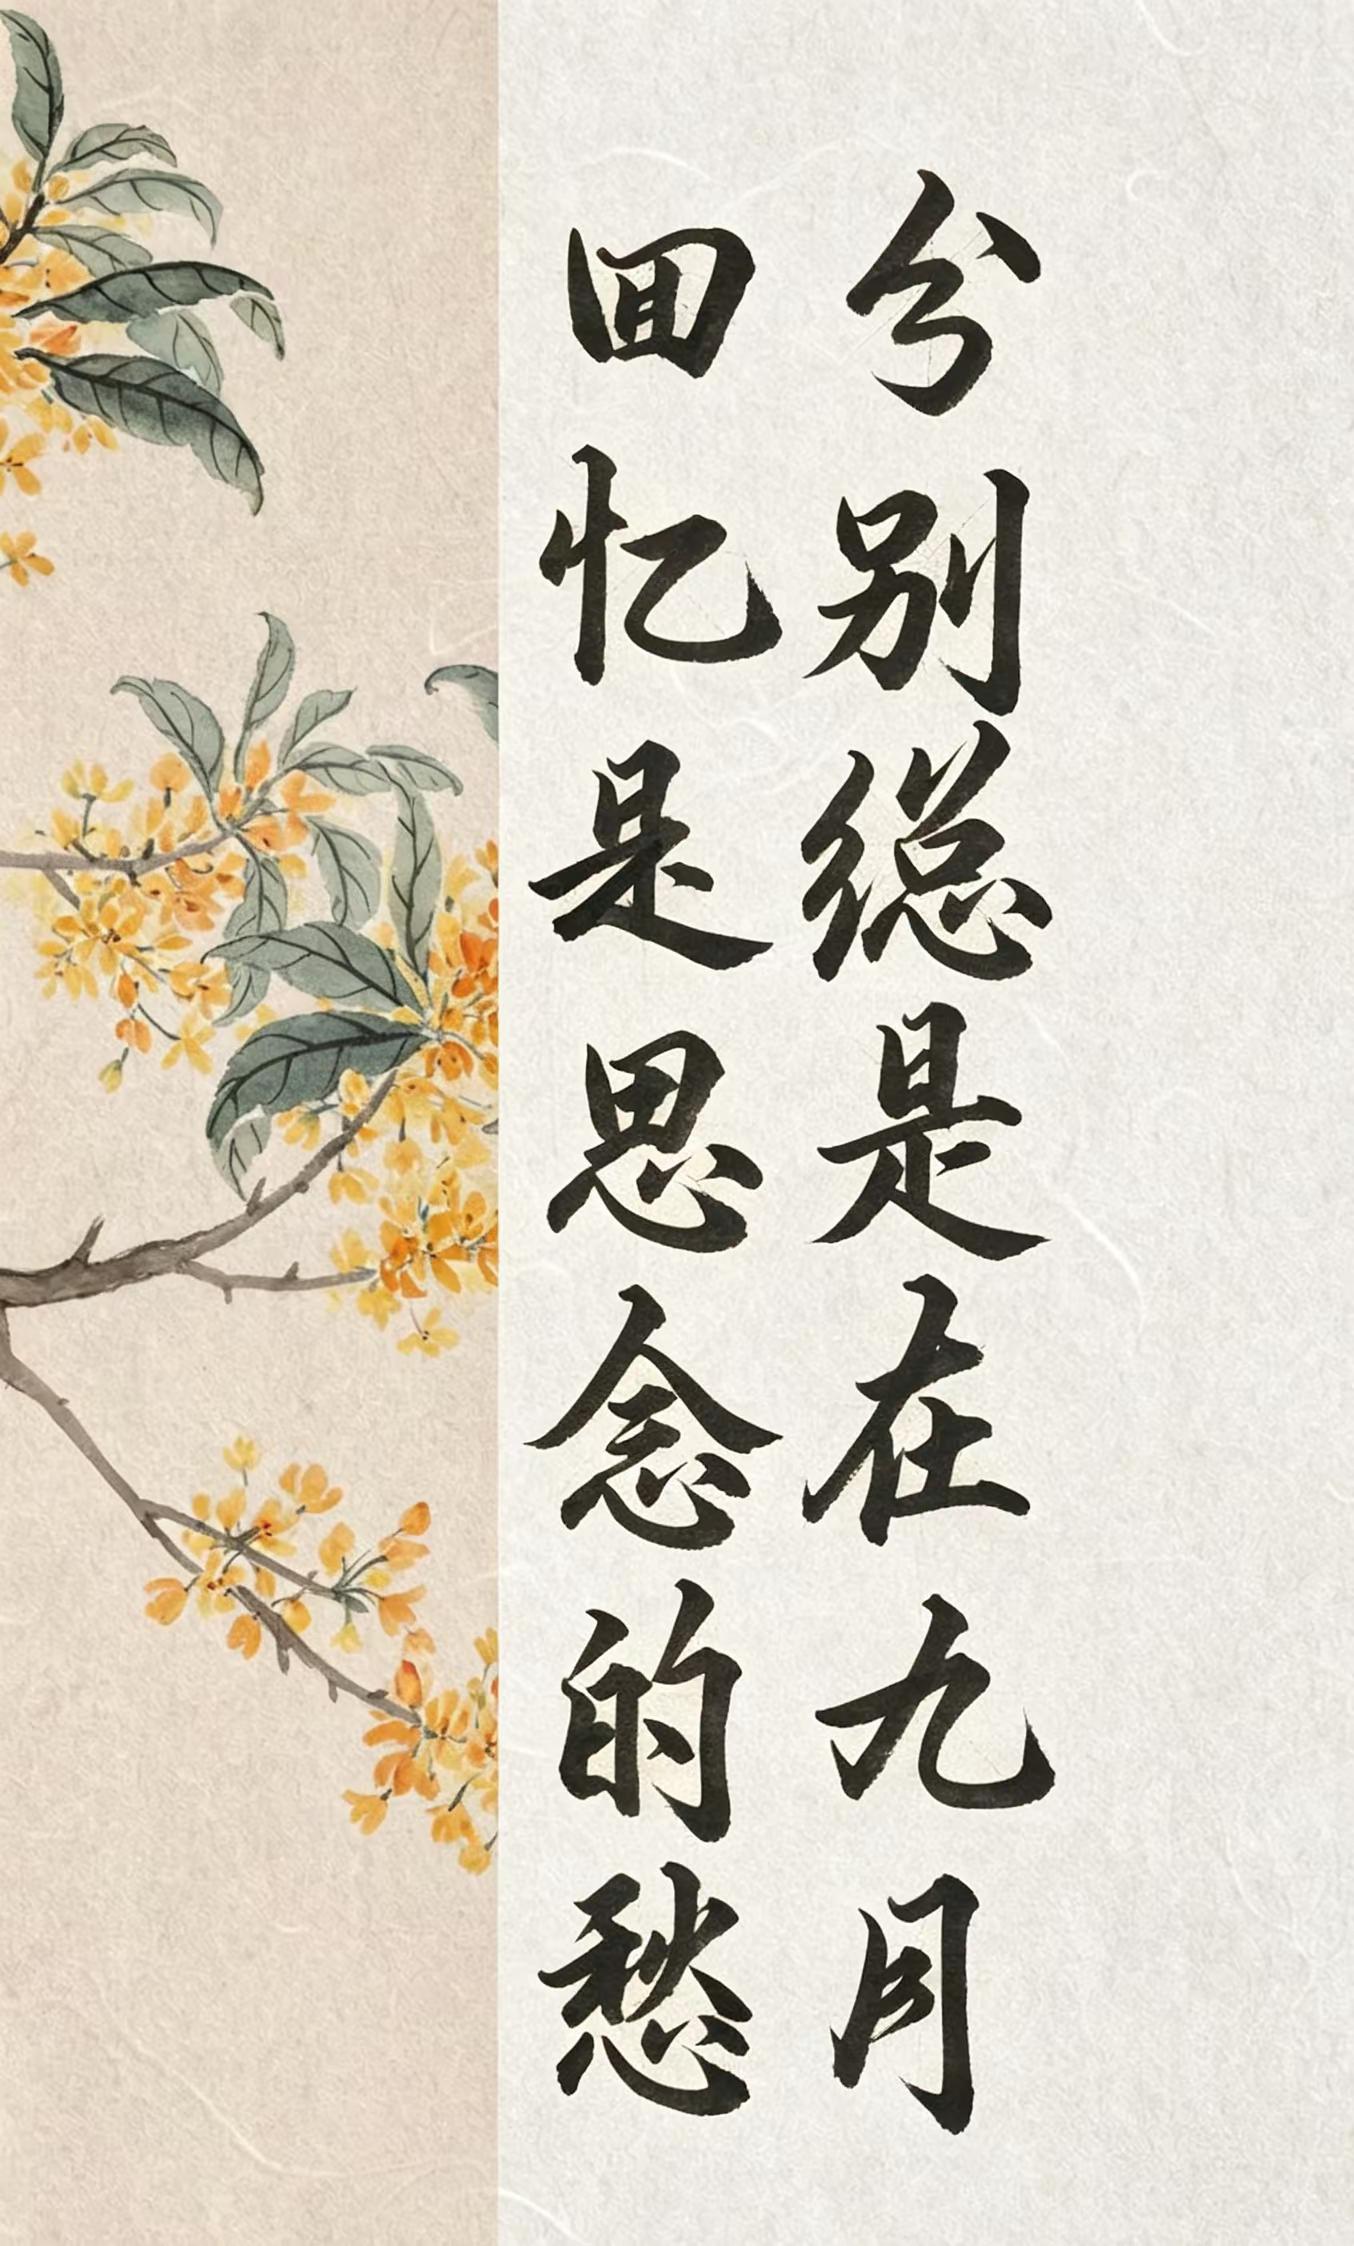 分别総是在九月
回忆是思念的愁